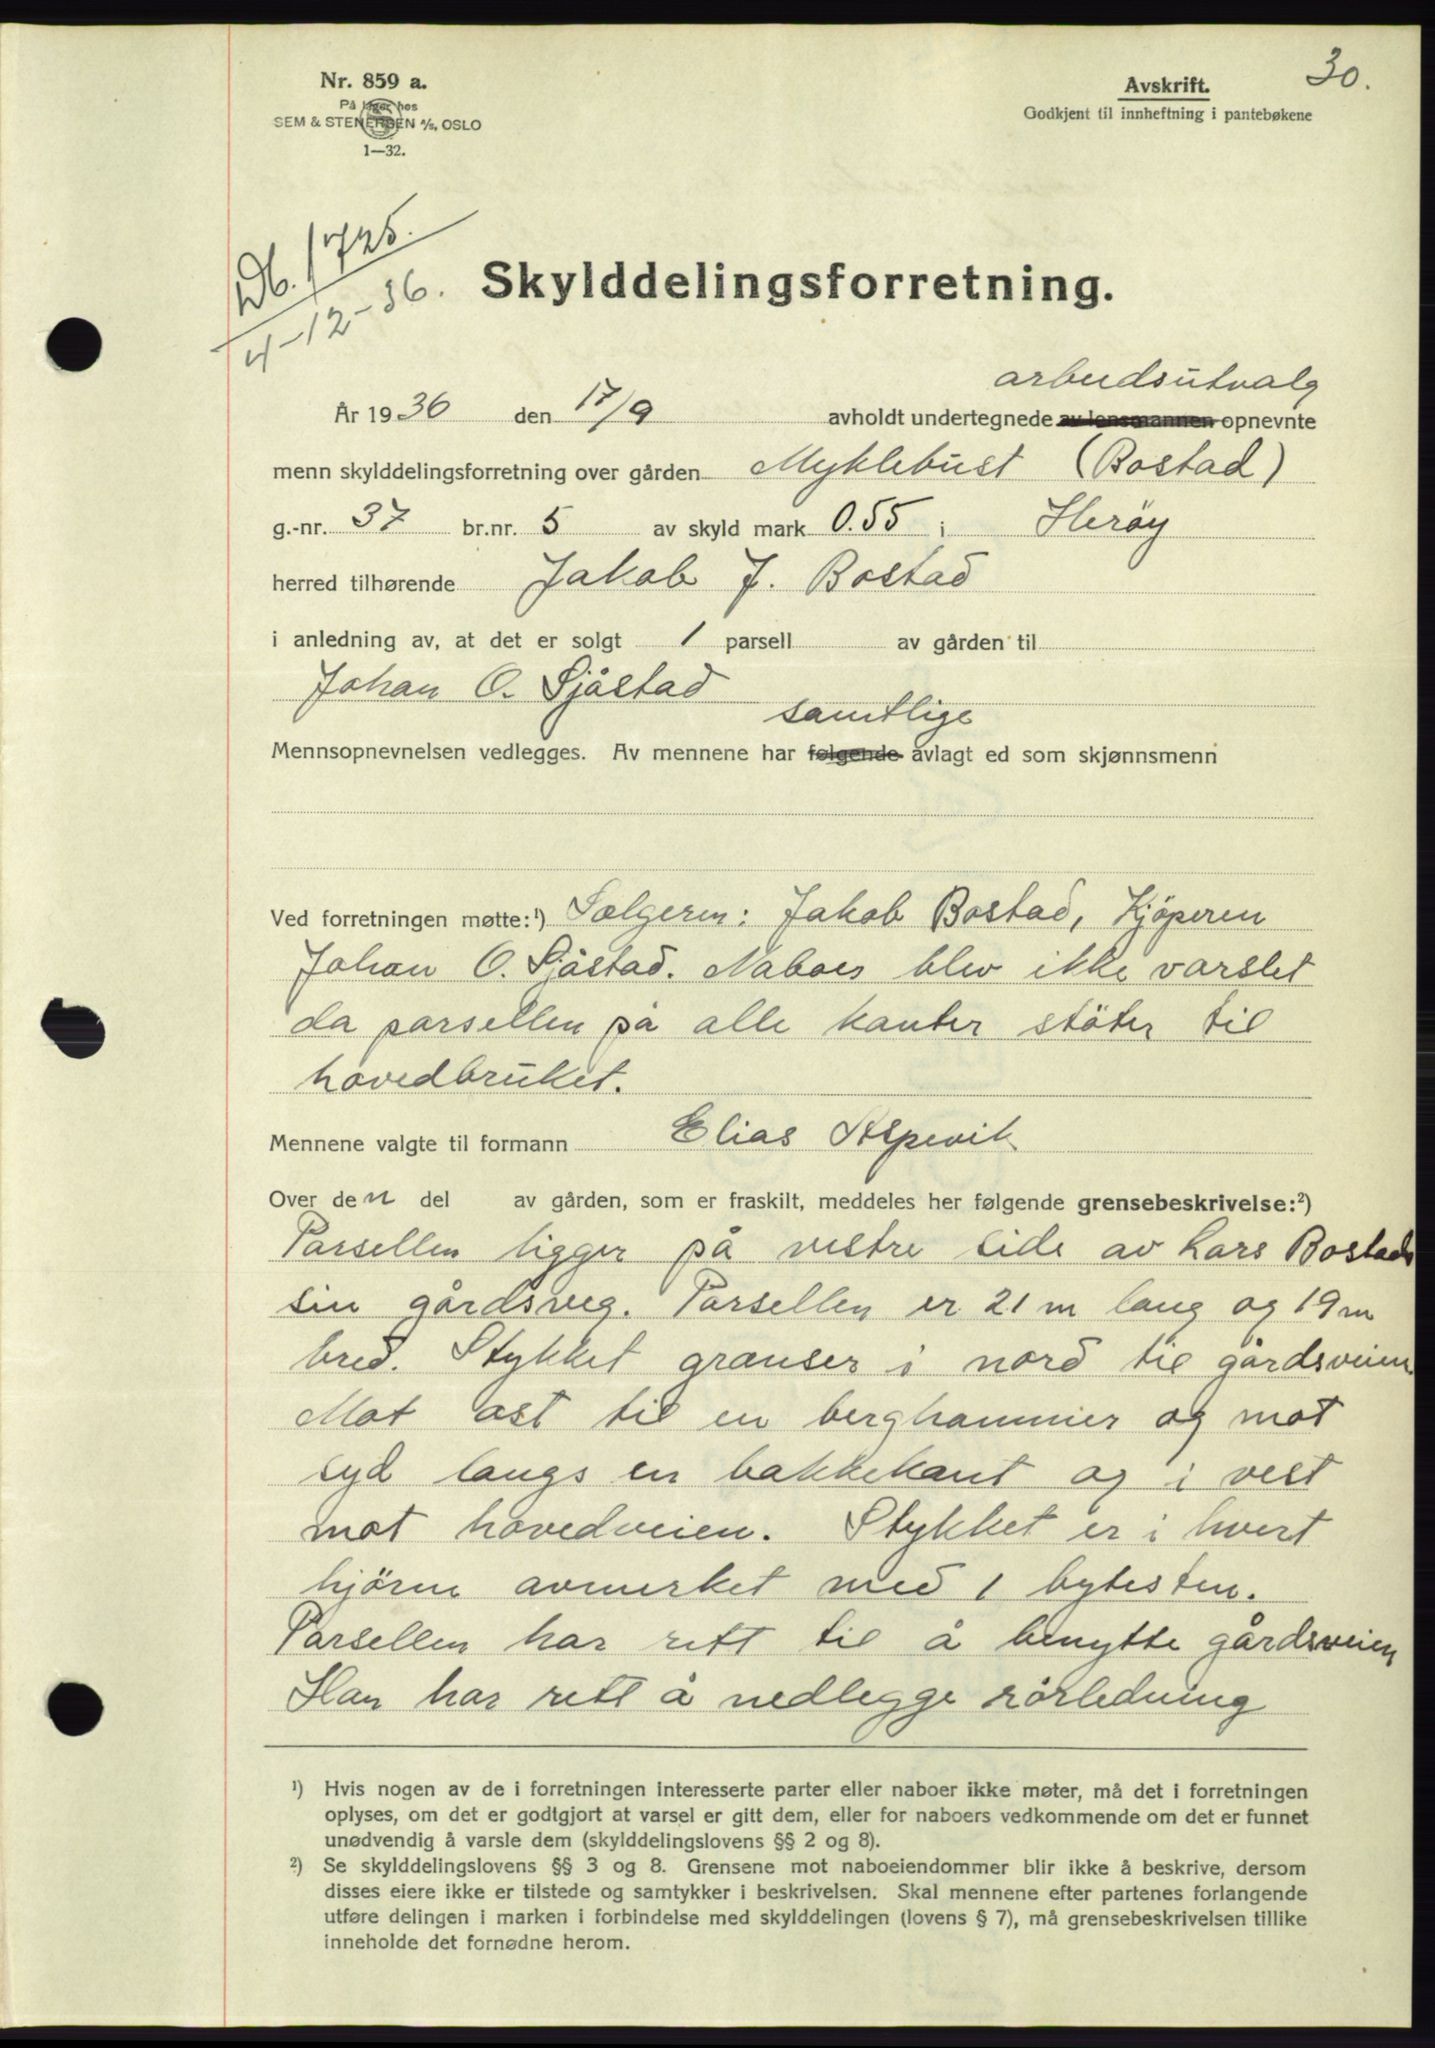 30.
Nr. 859 a.
På lager hos
SEM & STENERSEN A/S, OSLO
1—32.
Avskrift.
Godkjent til innheftning i pantebøkene
Db. 1725.
4-12-36.
Skylddelingsforretning.
arbeidsutvalg
År 1936 den 17/9 avholdt undertegnede av lensmannen opnevnte
menn skylddelingsforretning over gården Myklebust (Bostad)
g.-nr. 37 br.nr. 5 av skyld mark 0.55 i Herøy
herred tilhørende Jakob J. Bostad
i anledning av, at det er solgt 1 parsell av gården til
Johan O. Sjåstad
samtlige
Mennsopnevnelsen vedlegges. Av mennene har følgende avlagt ed som skjønnsmenn
Ved forretningen møtte:¹) Sælgeren: Jakob Bostad, Kjöperen
Johan O. Sjåstad. Naboer blev ikke varslet
da parsellen på alle kanter stöter til
hovedbruket.
Mennene valgte til formann Elias Aspevik
Over den del av gården, som er fraskilt, meddeles her følgende grensebeskrivelse:²)
Parsellen ligger på vestre side av Lars Bostads
sin gårdsveg. Parsellen er 21 m lang og 19 m
bred. Stykket grænser i nord til gårdsveien
Mot øst til en berghammer og mot
syd langs en bakkekant og i vest
mot hovedveien. Stykket er i hvert
hjörne avmerket med 1 bytesten.
Parsellen har rett til å benytte gårdsveien
Han har rett å nedlegge rörledning
¹) Hvis nogen av de i forretningen interesserte parter eller naboer ikke møter, må det i forretningen
oplyses, om det er godtgjort at varsel er gitt dem, eller for naboers vedkommende om det er funnet
unødvendig å varsle dem (skylddelingslovens §§ 2 og 8).
²) Se skylddelingslovens §§ 3 og 8. Grensene mot naboeiendommer blir ikke å beskrive, dersom
disses eiere ikke er tilstede og samtykker i beskrivelsen. Skal mennene efter partenes forlangende
utføre delingen i marken i forbindelse med skylddelingen (lovens § 7), må grensebeskrivelsen tillike
inneholde det fornødne herom.